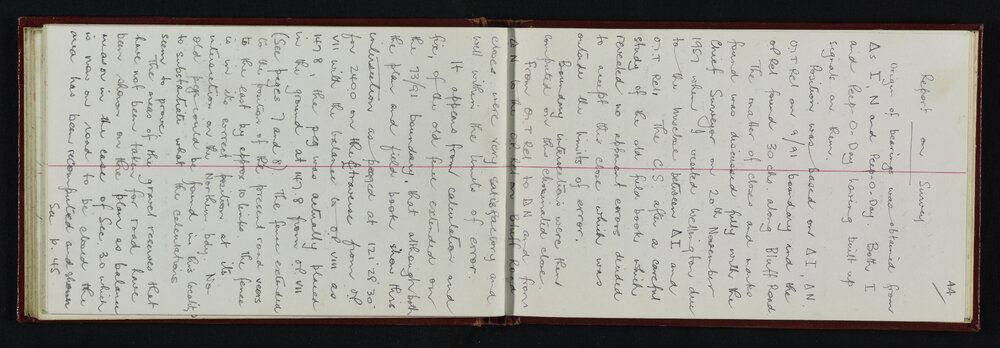 44
Report on Survey
Origin of bearings was obtained from
Δs I N and Peep-O-Day. Both I
and Peep O-Day having built up
signals on them.
Position was based on Δ I, Δ N.
O.T Rel on 9/91 boundary and the
OP Rel found 30 chs along Bluff Road
The matter of closes and marks
found was discussed fully with the
Chief Surveyor on 20th November
1957 when I visited Wellington due
to the misclose between Δ I and
O.T Rel. The C S after a careful
study of the old field books which
revealed no apparent errors decided
to accept this close which was
outside the limits of error.
Boundary intersections were then
computed on this eliminated close.
From O.T Rel to Δ N and from
Δ N to the OP Rel on Bluff Road
closes were very satisfactory and
well within the limits of error.
It appears from calculation and
fix, of the old fence that extended on
the 93/91 boundary that although both
the plan and field book show this
intersection as pegged at 121° 28' 30"
for 2400 on the traverse from OP
VII with the balance to OP VIII as
1478, the peg was actually placed
in the ground at 1478 from OP VII
(See pages 7 and 8) The fence extended
to the position of the present road veers
to the east by approx 10 links. The fence
is in its correct position at its
intersection on the Northern bdy. No
old pegs could be found in this locality
to substantiate what the calculations
seem to prove.
The areas of the gravel reserves that
have not been taken for road have
been shown on the plan as balance
areas in the case of Sec. 30, which
is now on road to be closed the
area has been recomputed and shown
See p. 45